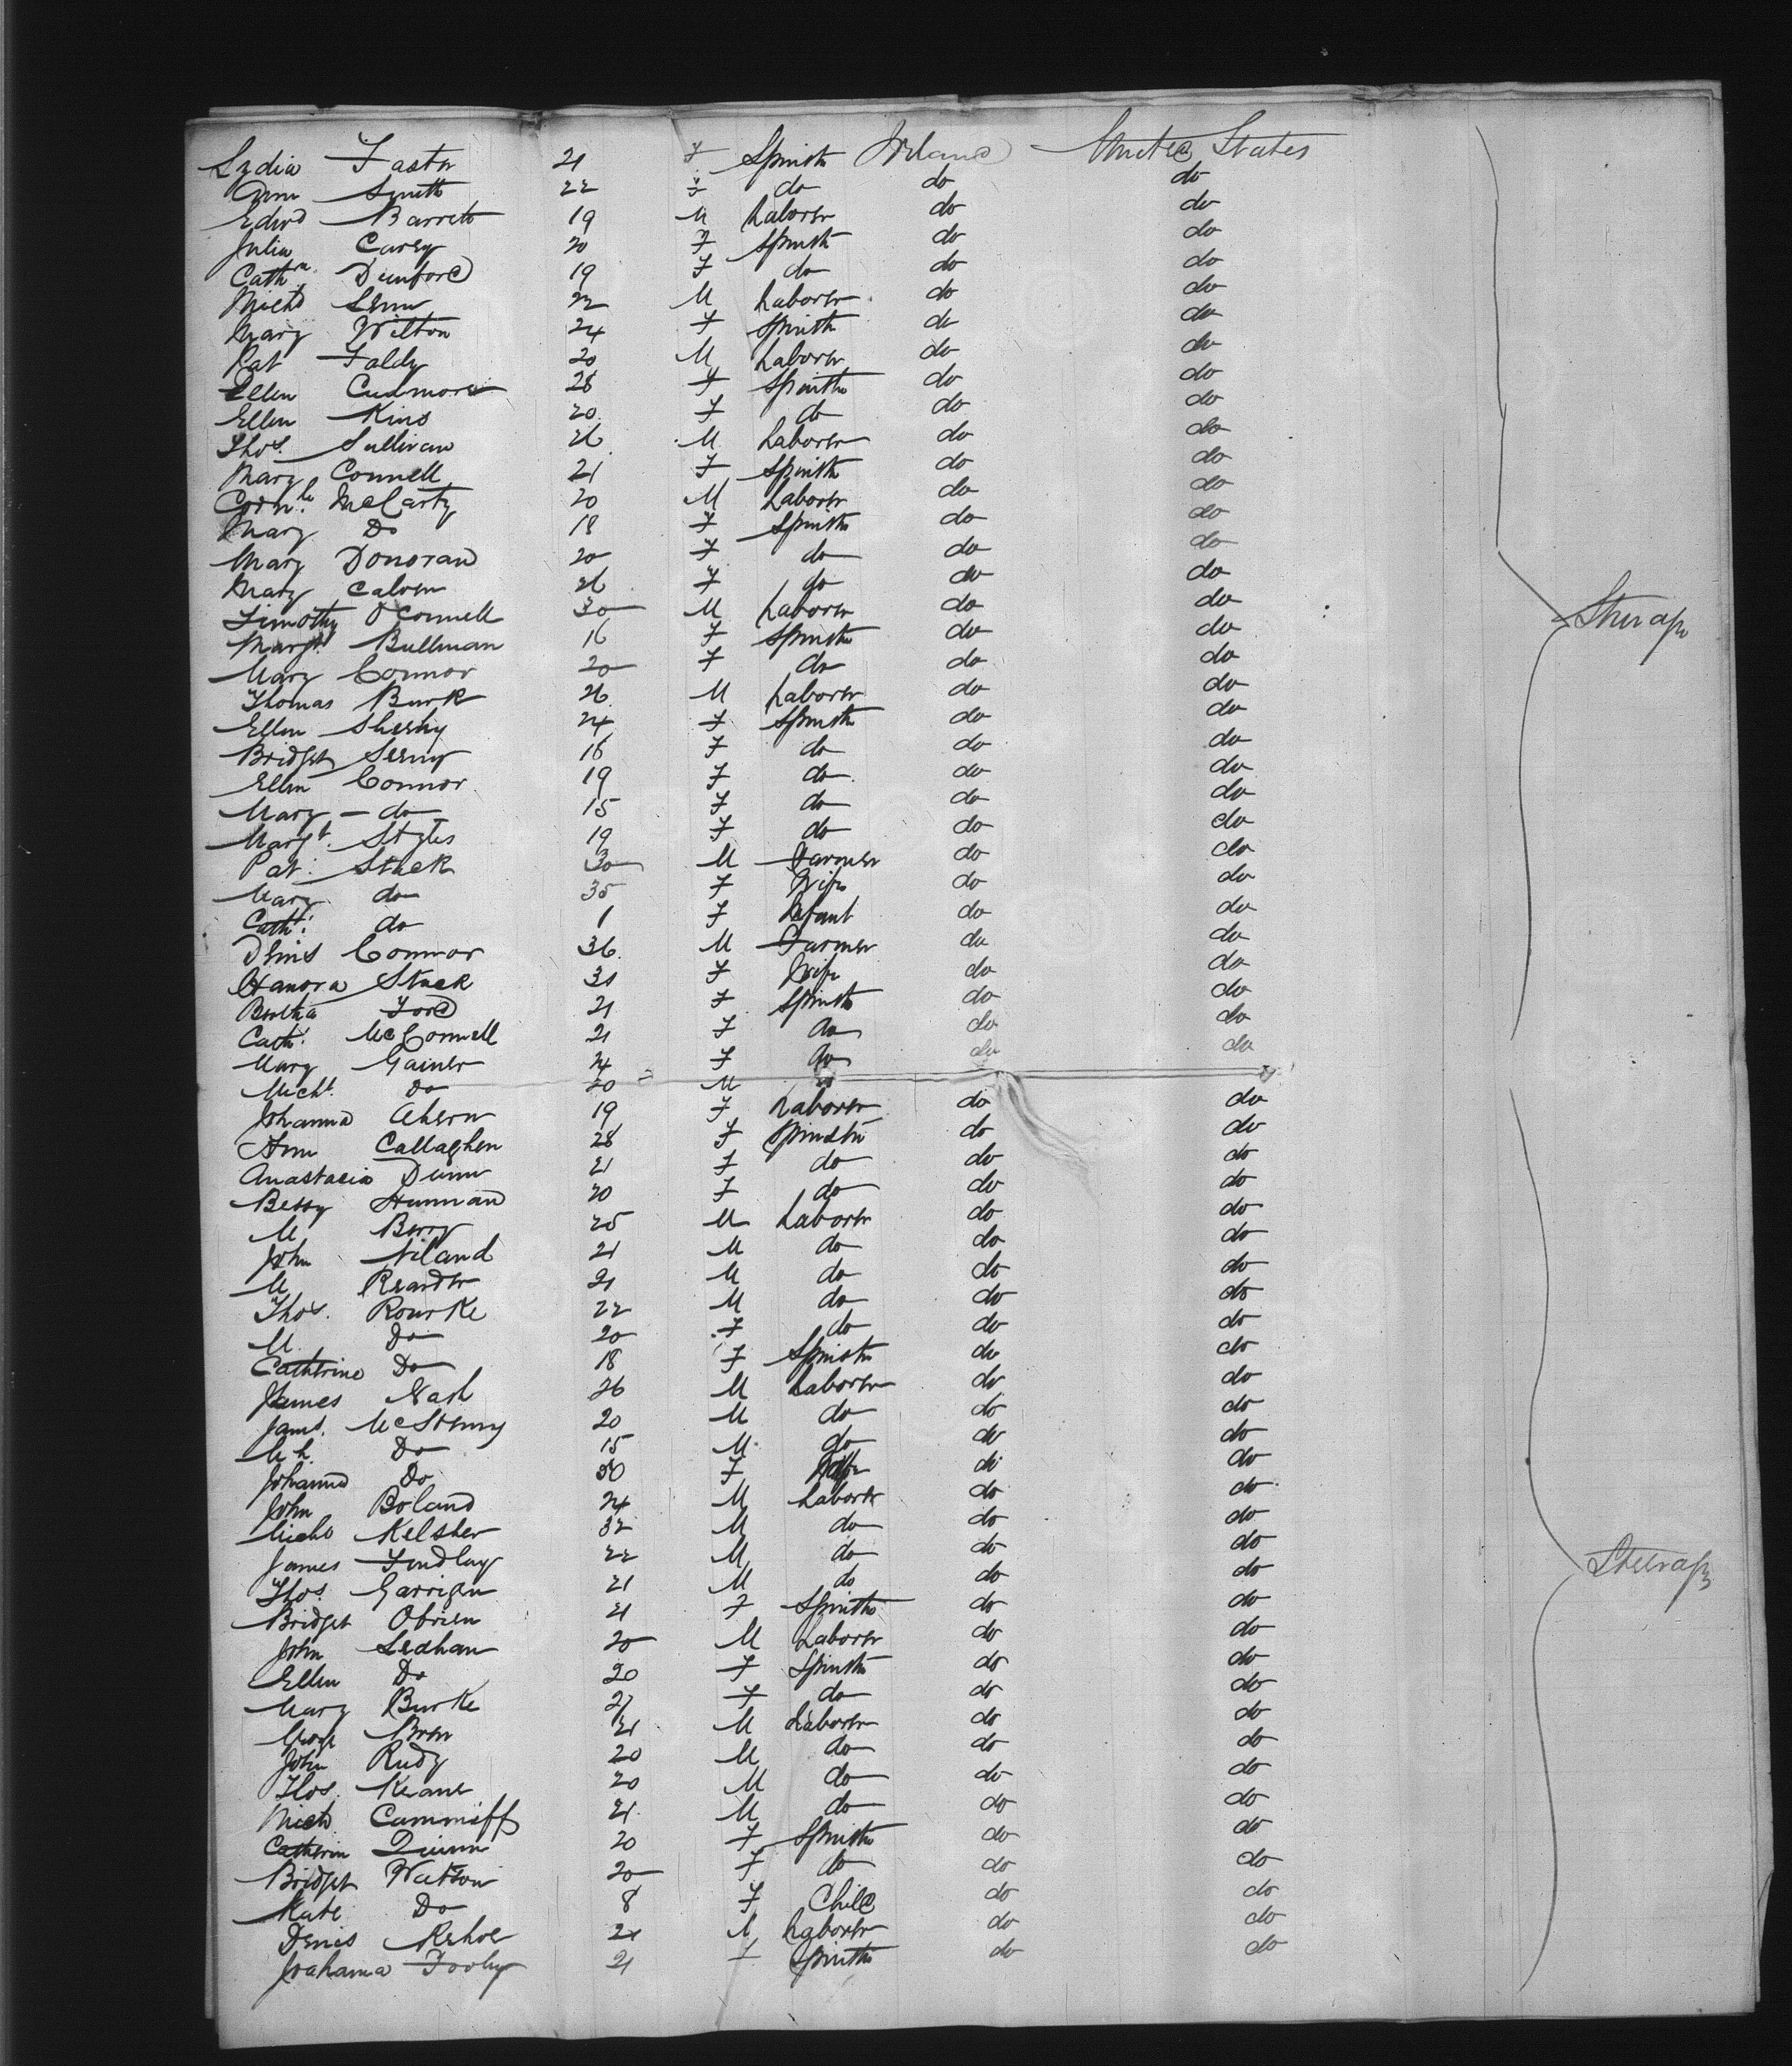 Lydia Faster 21 F Spinstr Ireland United States
Ann Smith 22 F do do do
Edwd Barrett 19 M Laborer do do
Julia Carey 20 F Spinstr do do
Cathrn Dunford 19 F do do do
Michl 22 M Laborer do do
Mary Wilton 24 F Spinstr do do
Pat Faldy 20 M Laborer do do
Ellen Cudmore 28 F Spinstr do do
Ellen King 20 F do do do
Thos. Sullivan 26 M Laborer do do
Mary Connell 21 F Spinstr do do
Cornls McCarty 20 M Laborer do do
Mary Do 18 F Spinstr do do
Mary Donovan 20 F do do do
Mary Calven 26 F do do do
Timothy OConnell 30 M Laborer do do
Margt Bullman 16 F Spinstr do do Steerage
Mary Connor 20 F do do do
Thomas Burk 26 M Laborer do do
Ellen Sheehy 24 F Spinstr do do
Bridget 16 F do do do
Ellen Connor 19 F do do do
Mary - do 15 F do do do
Margt. Styles 19 F do do do
Pat: Stack 30 M Farmer do do
Mary do 35 F Wife do do
Cath: do 1 F Infant do do
Denis Connor 36 M Farmer do do
Hanora Stack 31 F Wife do do
Bertha Ford 21 F Spinstr do do
Cath: McConnell 21 F do do do
Mary Gainer 24 F do do do
Michl. Do 20 M
Johanna Ahern 19 F Laborer do do
Ann Callaghen 28 F Spinstr do do
Anastacia Dunn 21 F do do do
Bessy Hunnan 20 F do do do
M Berry 25 M Laborer do do
John Niland 21 M do do do
M Reardon 21 M do do do
Thos. Rourke 22 M do do do
M Do 20 F do do do
Catherine Do 18 F Spinstr do do
James Nash 26 M Laborer do do
Jams. 20 M do do do
Do 15 M do do do
Johanna Do 50 F Wife do do
John Boland 24 M Laborer do do
Michl Kelsher 32 M do do do
James Findlay 22 M do do do
Thos. Garrigan 21 M do do do Steerage
Bridget Obrien 21 F Spinstr do do
John Leahan 20 M Laborer do do
Ellen Do 20 F Spinstr do do
Mary Burke 27 F do do do
George 21 M Laborer do do
John Rudy 20 M do do do
Thos. Keane 20 M do do do
Michl Cunniff 21 M do do do
Catherin Quinn 20 F Spinstr do do
Bridget Watson 20 F do do do
Kate Do 8 F Child do do
Denis Kehoe 24 M Laborer do do
Joahanna Foohy 21 F Spinstr do do